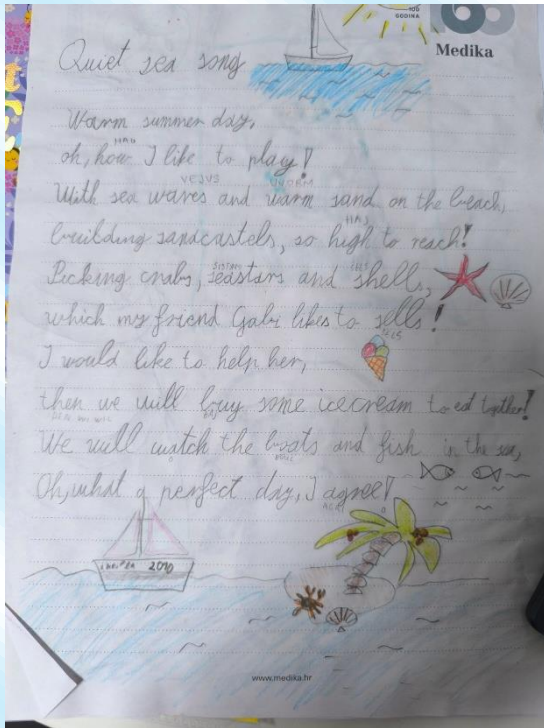 100
GODINA
Medika
Quiet sea song
Warm summer day,
oh, how I like to play!
HAU
With sea waves and warm sand on the beach,
VEJVS UOORM
building sandcastels, so high to reach!
HAJ
Picking crabs, seastars and shells,
SISTARS ŠELS
which my friend Gabi likes to sells!
SELS
I would like to help her,
then we will buy some icecream to eat together!
BAJ
We will watch the boats and fish in the sea,
Oh, what a perfect day, I agree!
AGRI
2010
www.medika.hr